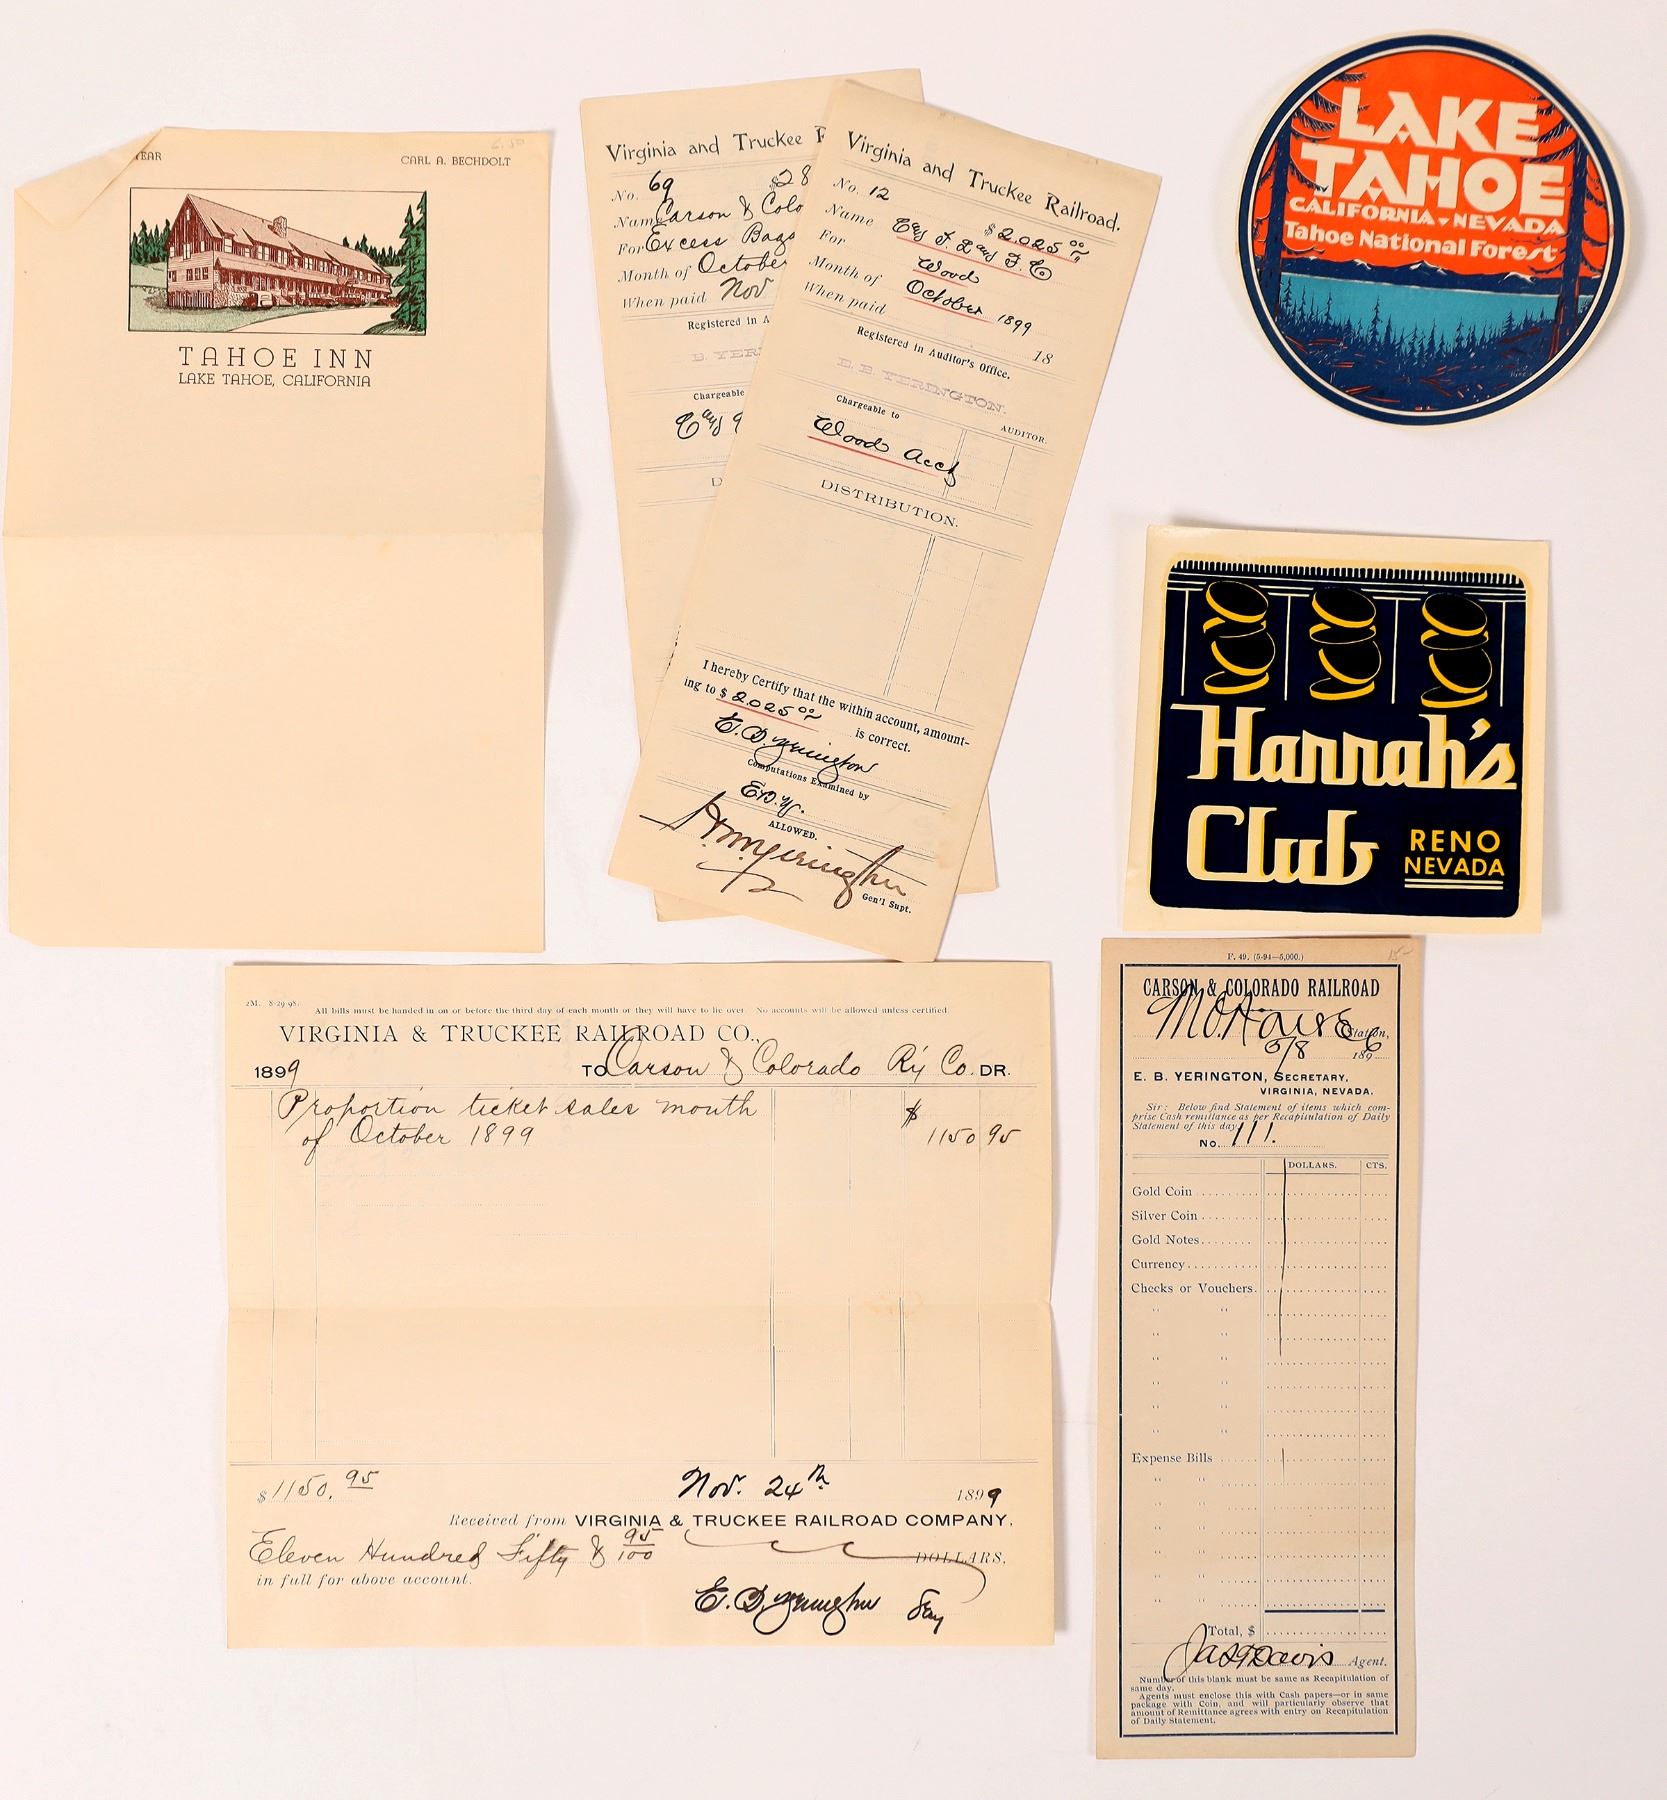 YEAR
CARL A. BECHDOLT
6.50
TAHOE INN
LAKE TAHOE, CALIFORNIA
Virginia and Truckee R
No. 69 $28
Name Carson & Colo
For Excess Bags
Month of October
When paid Nov
Registered in A
E. B. YER
Chargeable
D
Virginia and Truckee Railroad.
No. 12 $2.025 00
Name C & T L & F Co
For Wood
Month of October 1899
When paid 18
Registered in Auditor's Office.
E. B. YERINGTON.
AUDITOR.
Chargeable to
Wood Acct
DISTRIBUTION.
I hereby Certify that the within account, amount-
ing to $ 2.025 00 is correct.
E. B. Yerington
Computations Examined by
E.B.Y.
ALLOWED.
H. M. Yerington
Gen'l Supt.
LAKE
TAHOE
CALIFORNIA - NEVADA
Tahoe National Forest
Hannah's
Club
RENO
NEVADA
2M. 8-29-98.
All bills must be handed in on or before the third day of each month or they will have to lie over. No accounts will be allowed unless certified
VIRGINIA & TRUCKEE RAILROAD CO.,
1899 TO Carson & Colorado Ry Co. DR.
Proportion ticket sales month
of October 1899 $ 1150 95
$ 1150.95 Nov. 24th 1899
Received from VIRGINIA & TRUCKEE RAILROAD COMPANY,
Eleven Hundred Fifty & 95/100 DOLLARS,
in full for above account.
E. B. Yerington Secy
F. 49. (5-94—5,000.)
15-
CARSON & COLORADO RAILROAD
Mo. House Station,
5/8 1896
E. B. YERINGTON, SECRETARY,
VIRGINIA, NEVADA.
Sir: Below find Statement of items which com-
prise Cash remittance as per Recapitulation of Daily
Statement of this day
No. 111.
DOLLARS. CTS.
Gold Coin
Silver Coin
Gold Notes
Currency
Checks or Vouchers.
" "
" "
" "
" "
" "
" "
Expense Bills
" "
" "
" "
" "
" "
" "
Total, $
Jas T Davis Agent.
Number of this blank must be same as Recapitulation of
same day.
Agents must enclose this with Cash papers—or in same
package with Coin, and will particularly observe that
amount of Remittance agrees with entry on Recapitulation
of Daily Statement.